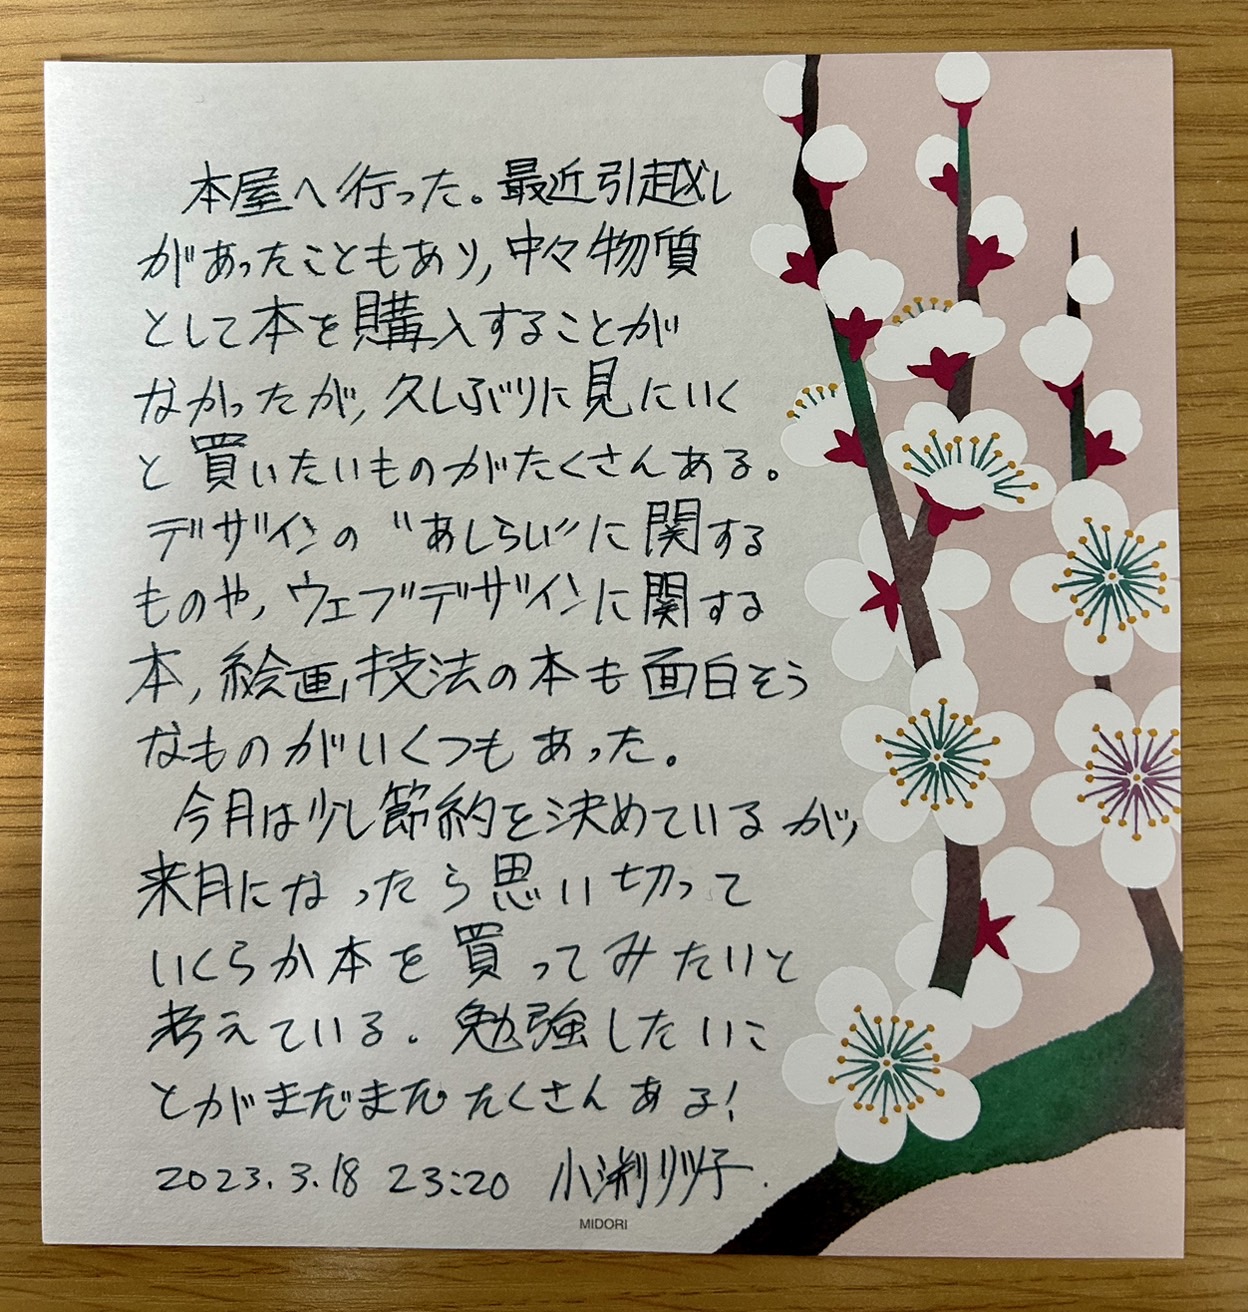 本屋へ行った。最近引越し
があったこともあり,中々物質
として本を購入することが
なかったが,久しぶりに見にいく
と買いたいものがたくさんある。
デザインの“あしらい”に関する
ものや,ウェブデザインに関する
本,絵画技法の本も面白そう
なものがいくつもあった。
今月は少し節約を決めているが,
来月になったら思い切って
いくらか本を買ってみたいと
考えている。勉強したいこ
とがまだまだたくさんある!
2023.3.18 23:20 小渕リツ子
MIDORI